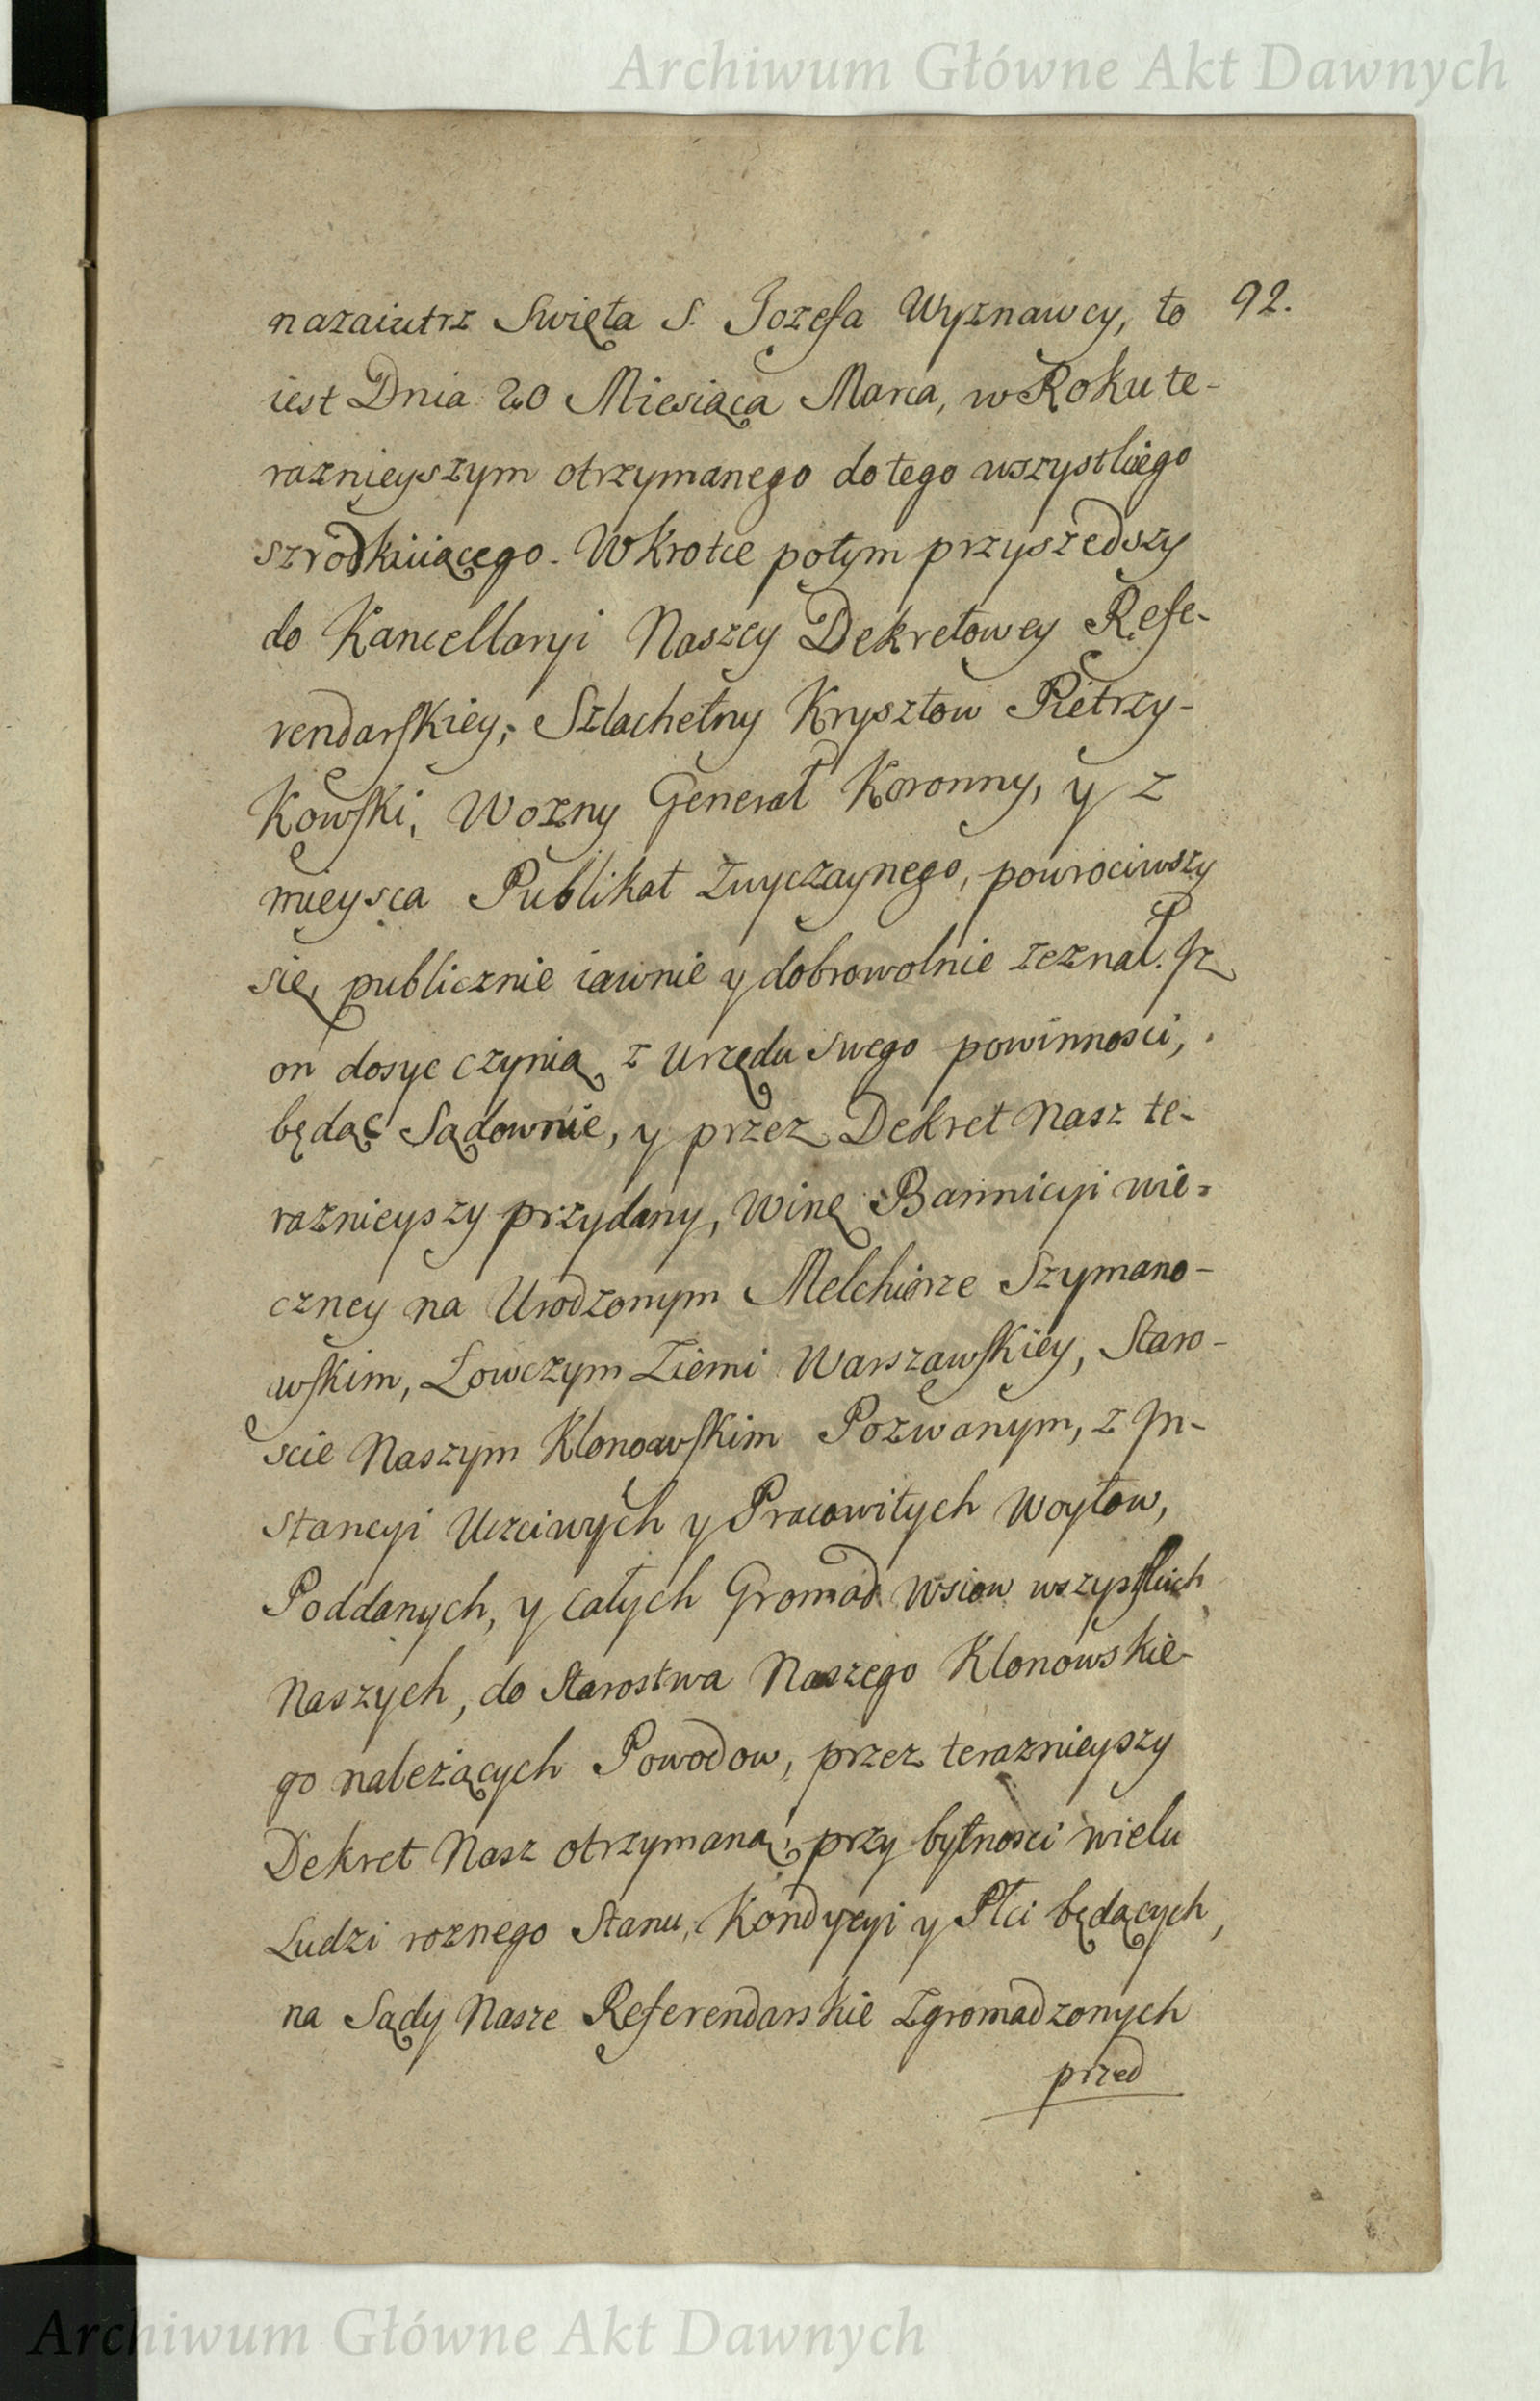 Archiwum Główne Akt Dawnych
92.
nazaiutrz Swięta S. Jozefa Wyznawcy, to
iest Dnia 20 Miesiąca Marca, w Roku te-
raznieyszym otrzymanego do tego wszystkiego
szrodkuiącego. Wkrotce potym przyszedszy
do Kancellaryi Naszey Dekretowey Refe-
rendarskiey, Szlachetny Krysztow Pietrzy-
Kowski, Wozny Generał Koronny, y z
mieysca Publikat Zwyczaynego, powrociwszy
się, publicznie iawnie y dobrowolnie zeznał. Iz
on dosyc czynią z Urzędu swego powinnosci,
będąc Sądownie, y przez Dekret Nasz te-
raznieyszy przydany, Winę Bannicyi wie-
czney na Urodzonym Melchiorze Szymano-
wskim, Łowczym Ziemi Warszawskiey, Staro-
scie Naszym Klonowskim Pozwanym, z In-
stancyi Uczciwych y Pracowitych Woytow,
Poddanych, y całych Gromad Wsiow wszystkich
Naszych, do Starostwa Naszego Klonowskie-
go należących Powodow, przez teraznieyszy
Dekret Nasz otrzymaną, przy bytnosci wielu
Ludzi roznego Stanu, Kondycyi y Płci będących,
na Sądy Nasze Referendarskie Zgromadzonych
przed
Archiwum Główne Akt Dawnych